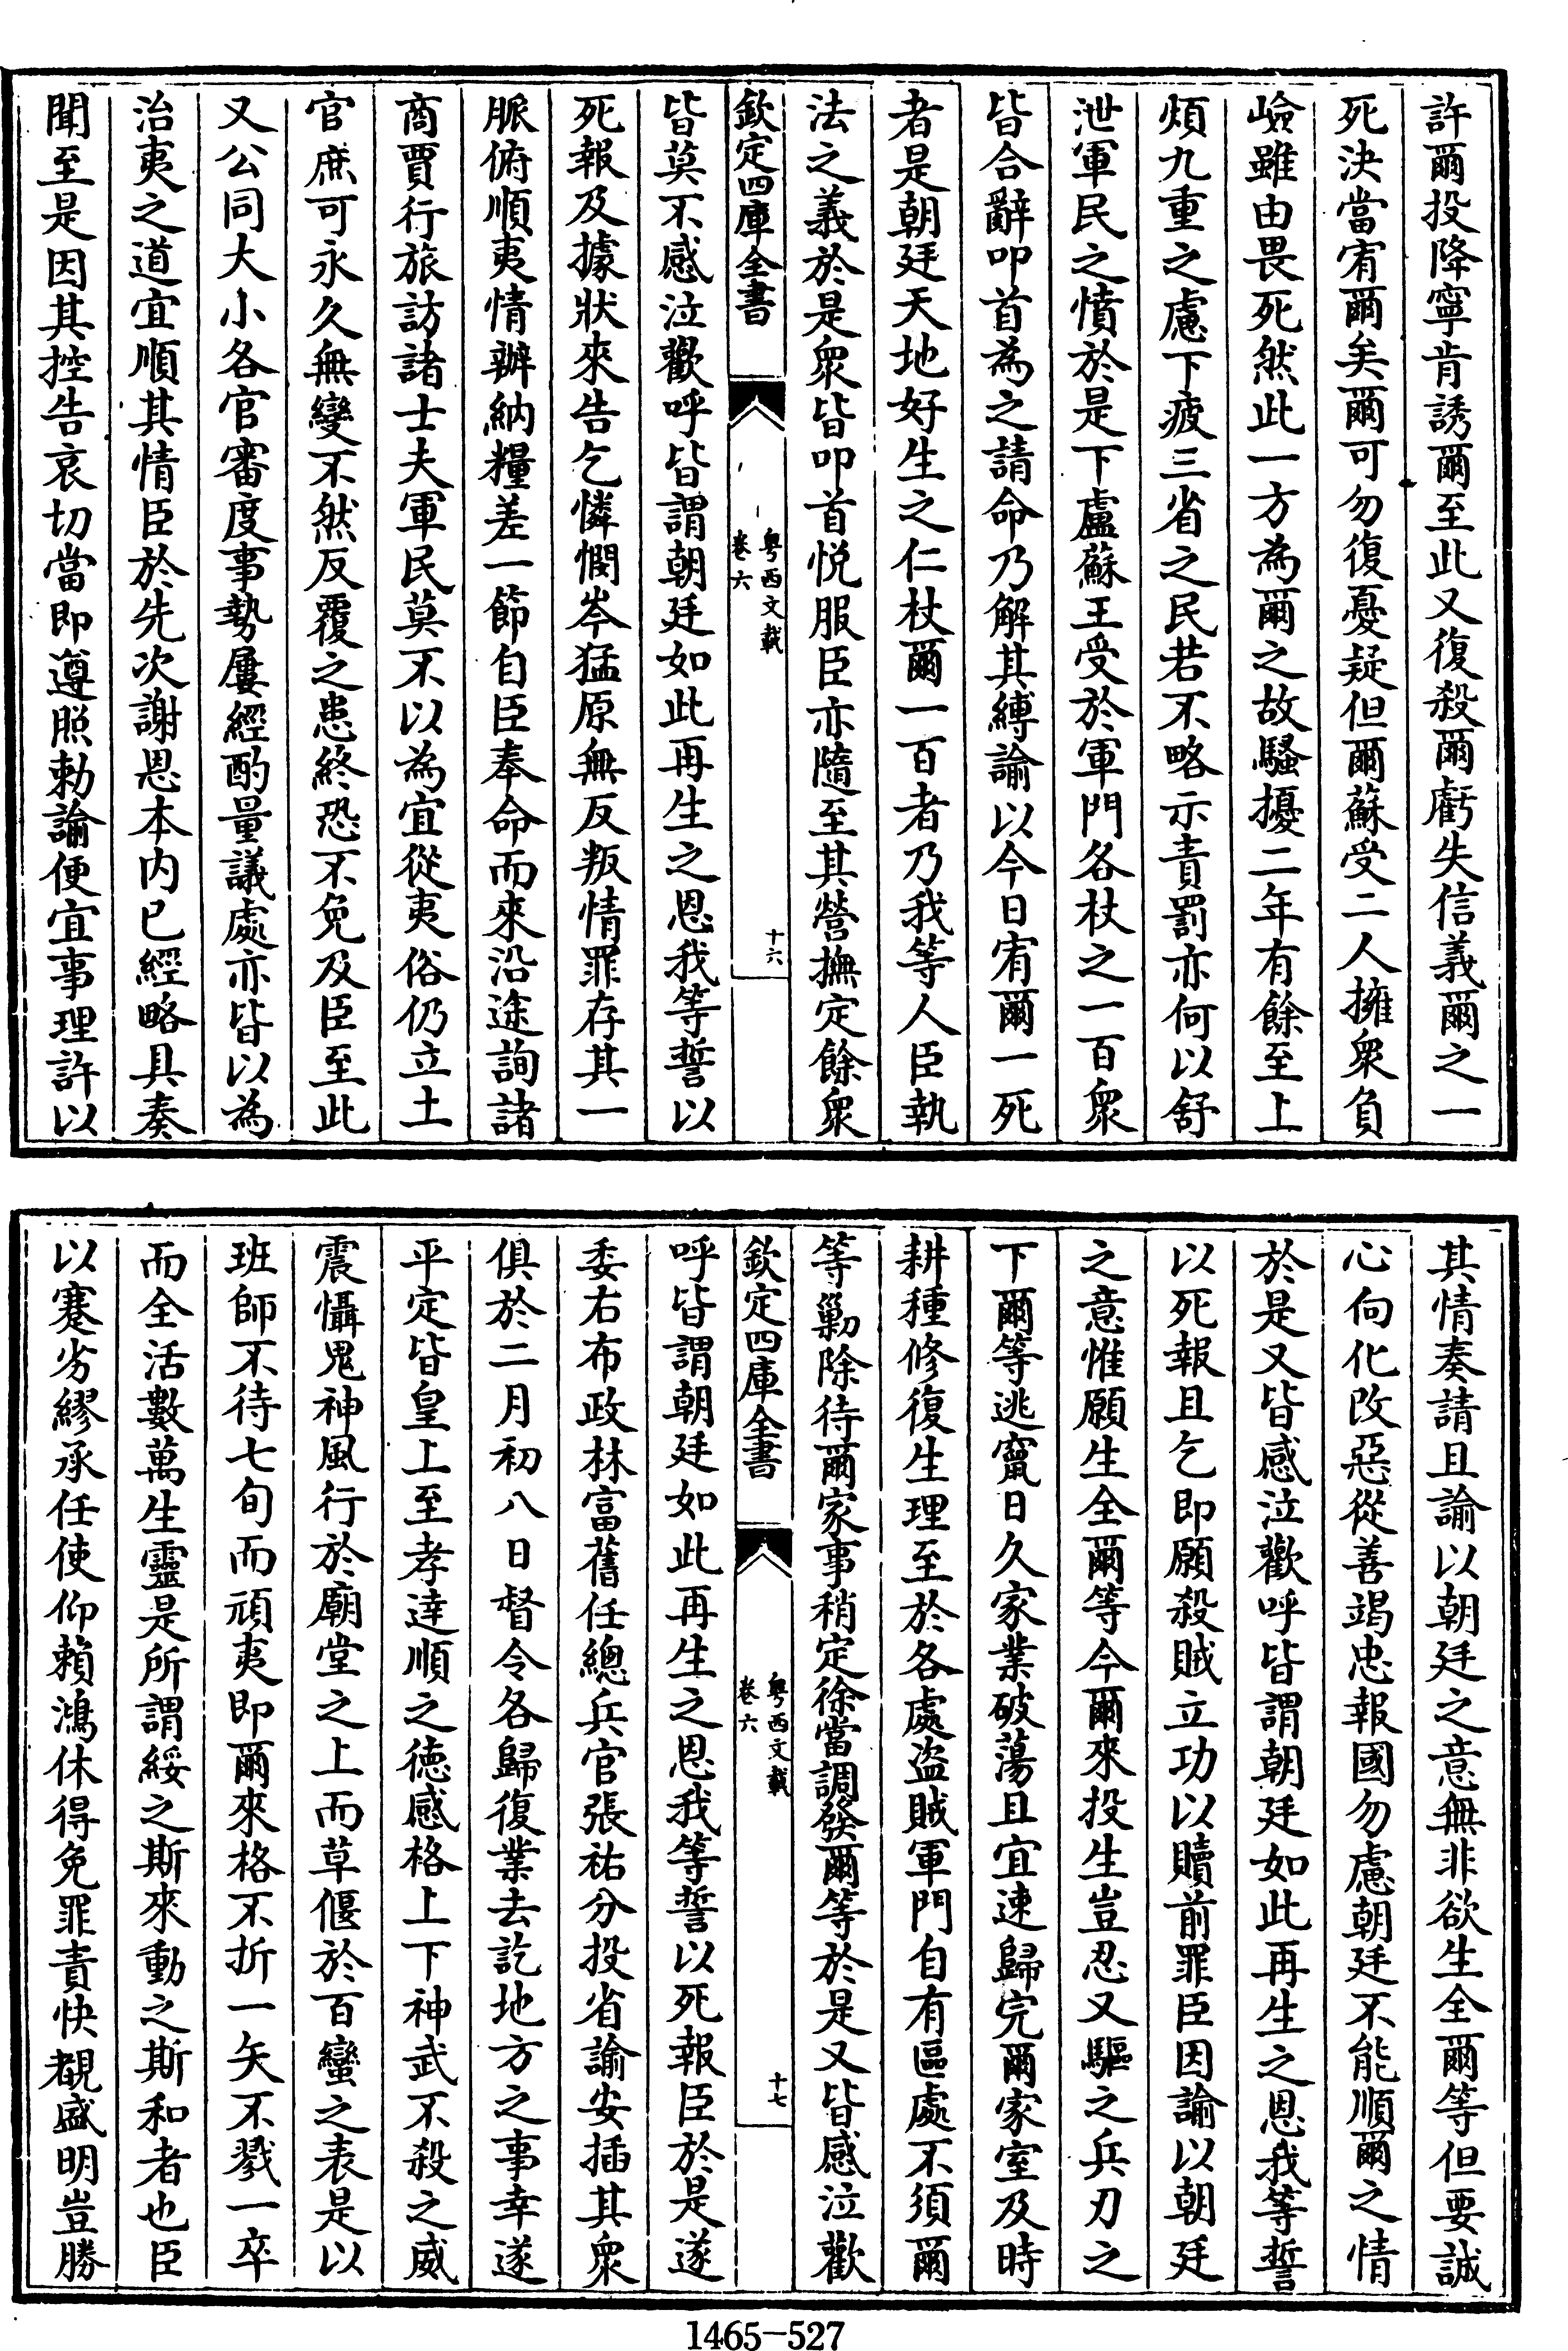 許爾投降寧肯誘爾至此又復殺爾虧失信義爾之一
死決當宥爾矣爾可勿復憂疑但爾蘇受二人擁衆負
嶮雖由畏死然此一方為爾之故騷擾二年有餘至上
煩九重之慮下疲三省之民若不略示責罰亦何以舒
泄軍民之憤於是下盧蘇王受於軍門各杖之一百衆
皆合辭叩首為之請命乃解其縛諭以今日宥爾一死
者是朝廷天地好生之仁杖爾一百者乃我等人臣執
法之義於是衆皆叩首悦服臣亦隨至其營撫定餘衆
欽定四庫全書
粵西文載
卷六
十六
皆莫不感泣歡呼皆謂朝廷如此再生之恩我等誓以
死報及據狀來告乞憐憫岑猛原無反叛情罪存其一
脈俯順夷情辦納糧差一節自臣奉命而來沿途詢諸
商賈行旅訪諸士夫軍民莫不以為宜從夷俗仍立土
官庶可永久無變不然反覆之患終恐不免及臣至此
又公同大小各官審度事勢屢經酌量議處亦皆以為
治夷之道宜順其情臣於先次謝恩本内已經略具奏
聞至是因其控告哀切當即遵照勅諭便宜事理許以
其情奏請且諭以朝廷之意無非欲生全爾等但要誠
心向化改惡從善竭忠報國勿慮朝廷不能順爾之情
於是又皆感泣歡呼皆謂朝廷如此再生之恩我等誓
以死報且乞即願殺賊立功以贖前罪臣因諭以朝廷
之意惟願生全爾等今爾來投生豈忍又驅之兵刃之
下爾等逃竄日久家業破蕩且宜速歸完爾家室及時
耕種修復生理至於各處盜賊軍門自有區處不須爾
等勦除待爾家事稍定徐當調發爾等於是又皆感泣歡
欽定四庫全書
粵西文載
卷六
十七
呼皆謂朝廷如此再生之恩我等誓以死報臣於是遂
委右布政林富舊任總兵官張祐分投省諭安插其衆
俱於二月初八日督令各歸復業去訖地方之事幸遂
平定皆皇上至孝達順之徳感格上下神武不殺之威
震懾鬼神風行於廟堂之上而草偃於百蠻之表是以
班師不待七旬而頑夷即爾來格不折一矢不戮一卒
而全活數萬生靈是所謂綏之斯來動之斯和者也臣
以蹇劣繆承任使仰賴鴻休得免罪責快覩盛明豈勝
1465-527